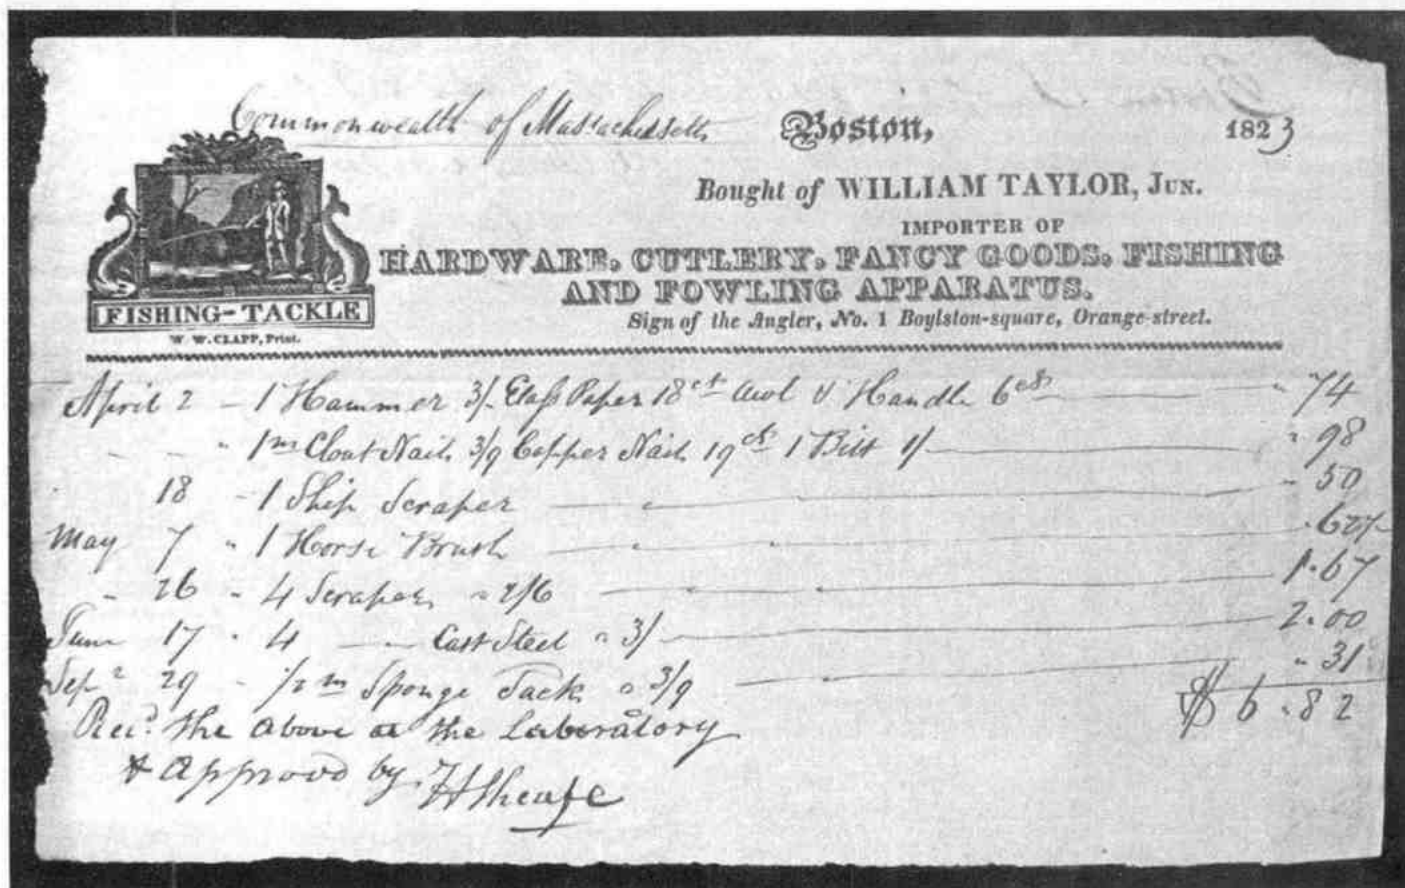 Commonwealth of Massachusetts Boston, 1823
Bought of WILLIAM TAYLOR, Jun.
IMPORTER OF
HARDWARE, CUTLERY, FANCY GOODS, FISHING
AND FOWLING APPARATUS.
Sign of the Angler, No. 1 Boylston-square, Orange-street.
FISHING-TACKLE
W. W. CLAPP, Print.
April 2 - 1 Hammer 3/- Glass Paper 18 cts Awl & Handle 6 cts " 74
" 1 m Clout Nails 3/9 Copper Nails 19 cts 1 Bitt 1/- " 98
18 - 1 Ship Scraper " 50
May 7 " 1 Horse Brush " 62½
" 26 - 4 Scrapers " 2/6 1.67
June 17 " 4 — Cast Steel " 3/- 2.00
Sep 29 - ½ m Sponge Tacks " 3/9 " 31
$ 6.82
Recd. the above at the Laboratory
& approved by H Sheafe